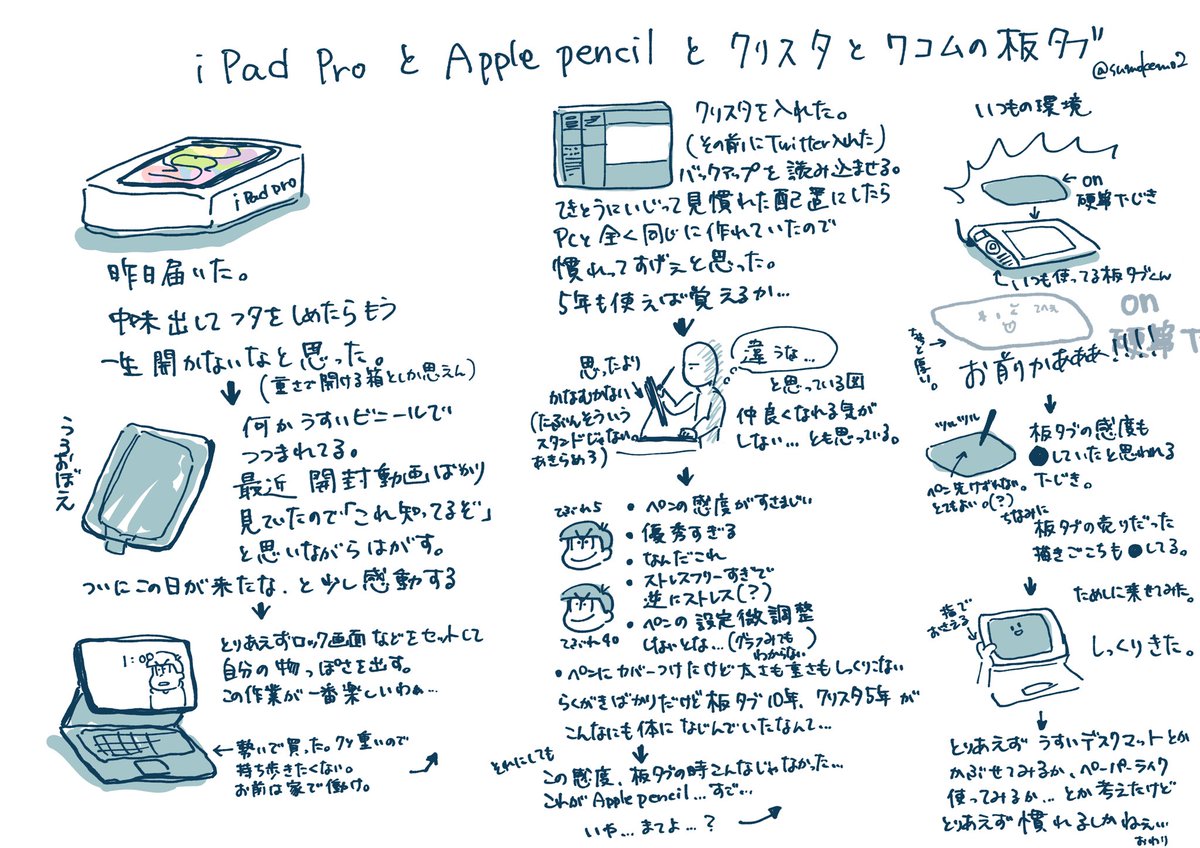 iPad Pro と Apple pencil と クリスタと ワコムの板タブ
@sumokemo2
iPad pro
昨日届いた。
中味出して フタをしめたらもう
一生 開かないなと思った。
(重さで開ける箱としか思えん)
うろおぼえ
何かうすいビニールで
つつまれてる。
最近 開封動画ばかり
見ていたので「これ知ってるぞ」
と思いながらはがす。
ついにこの日が来たな、と少し感動する
1:00
とりあえずロック画面などをセットして
自分の物っぽさを出す。
この作業が一番楽しいわぁ…
←勢いで買った。クソ重いので
持ち歩きたくない。
お前は家で働け。
クリスタを入れた。
(その前にTwitter入れた)
バックアップを読み込ませる。
てきとうにいじって見慣れた配置にしたら
PCと全く同じに作れていたので
慣れってすげぇと思った。
5年も使えば覚えるか…
思ったより
かたむかない
(たぶんそういう
スタンドじゃない。
あきらめろ)
違うな…
と思っている図
仲良くなれる気が
しない…とも思っている。
てぶれ5
てぶれ40
・ペンの感度がすさまじい
・優秀すぎる
・なんだこれ
・ストレスフリーすぎて
逆にストレス(?)
・ペンの設定微調整
しないとな…(グラフみても
わからない)
・ペンにカバーつけたけど太さも重さもしっくりこない
らくがきばかりだけど板タブ10年、クリスタ5年が
こんなにも体になじんでいたなんて…
それにしても
この感度、板タブの時こんなじゃなかった…
これがApple pencil…すご…
いや…まてよ…?
いつもの環境
←on
硬筆下じき
いつも使ってる板タブくん
てへぺ
on
硬筆下
わりと厚い。
お前かあああ!!!!
ツルツル
ペン先けずれない。
とてもよい。(?)
板タブの感度も
●していたと思われる
下じき。
ちなみに
板タブの売りだった
描きごこちも●してる。
ためしに乗せてみた。
指で
おさえる
しっくりきた。
とりあえず うすいデスクマットとか
かぶせてみるか、ペーパーライク
使ってみるか…とか考えたけど
とりあえず慣れるしかねぇ…
おわり